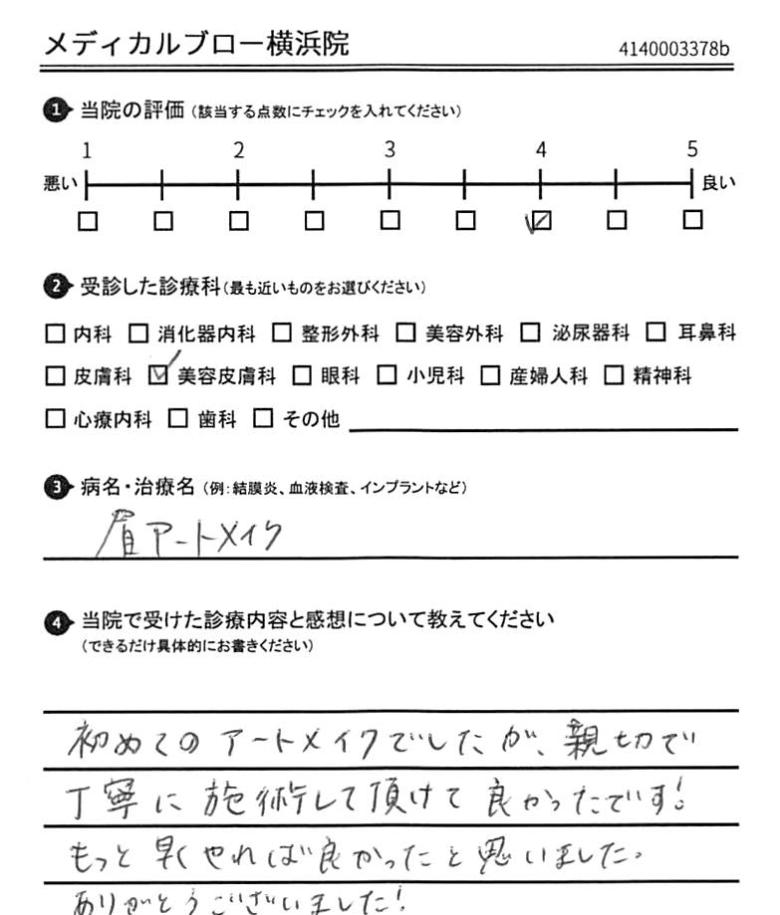 メディカルブロー横浜院 4140003378b
1 当院の評価（該当する点数にチェックを入れてください）
1 2 3 4 5
悪い 良い
2 受診した診療科（最も近いものをお選びください）
内科 消化器内科 整形外科 美容外科 泌尿器科 耳鼻科
皮膚科 美容皮膚科 眼科 小児科 産婦人科 精神科
心療内科 歯科 その他
3 病名・治療名（例：結膜炎、血液検査、インプラントなど）
眉アートメイク
4 当院で受けた診療内容と感想について教えてください
（できるだけ具体的にお書きください）
初めてのアートメイクでしたが、親切で
丁寧に施術して頂けて良かったです!
もっと早くやれば良かったと思いました。
ありがとうございました!